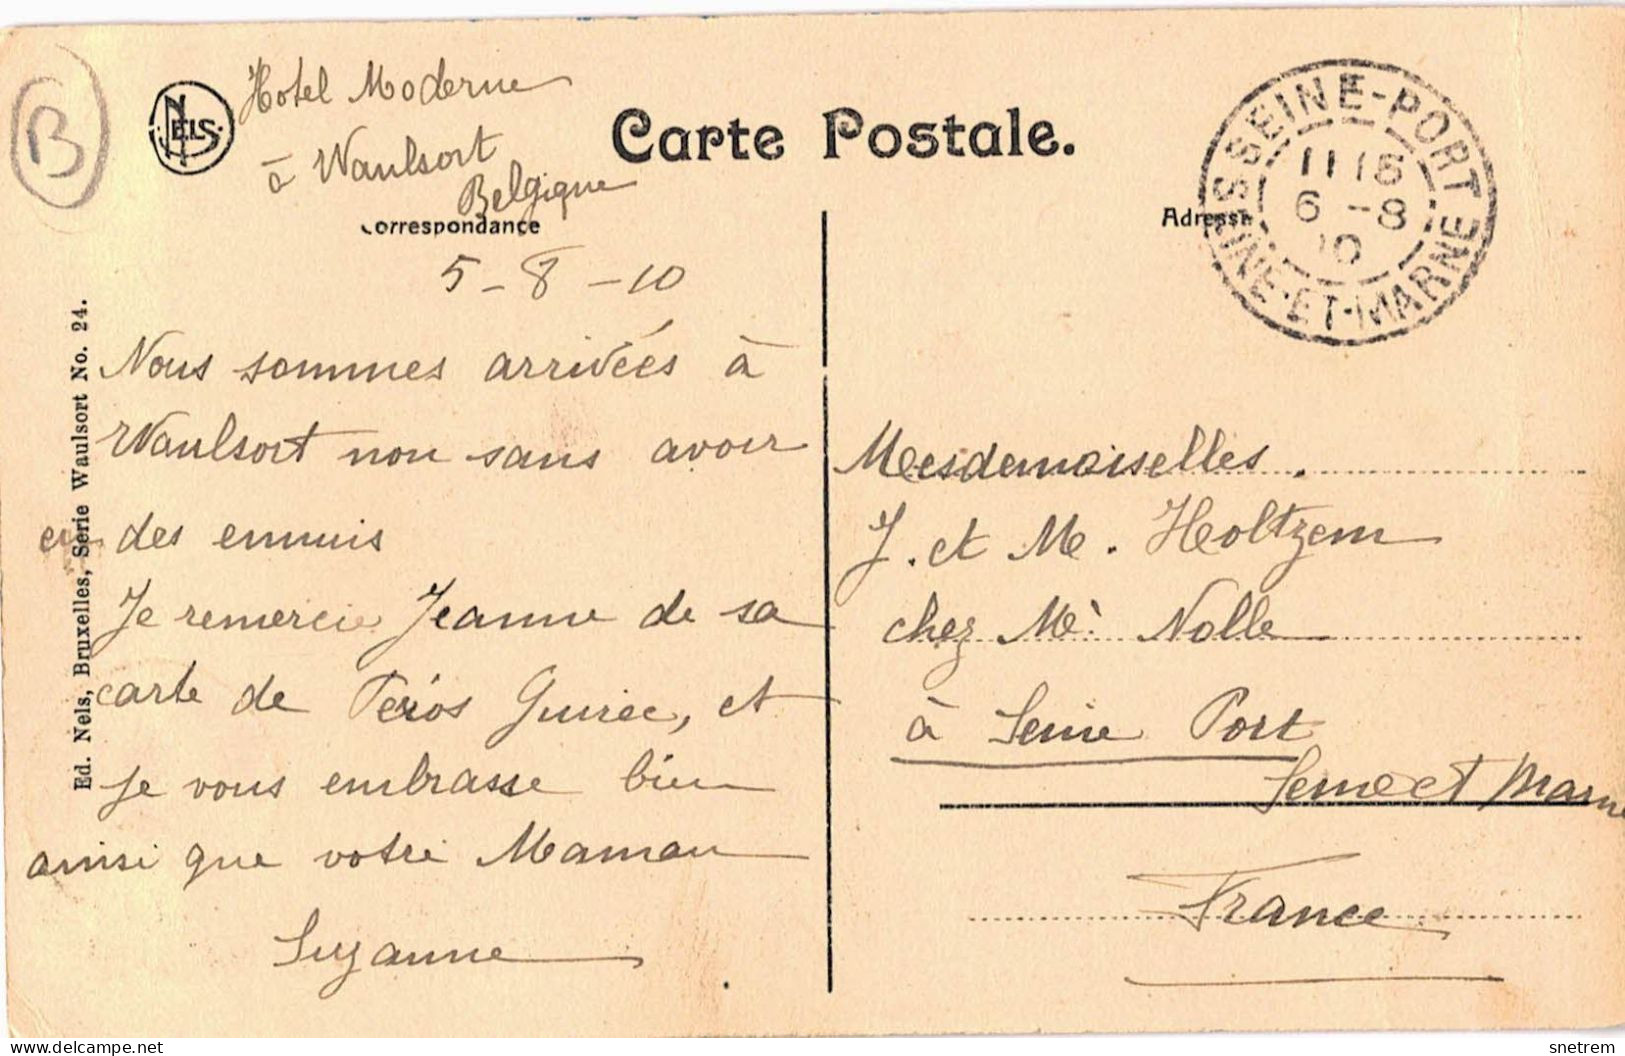 B
NELS
Hotel Moderne
à Waulsort
Belgique
Carte Postale.
Correspondance
Adresse
SEINE-PORT
11 15
6 -8
10
SEINE-ET-MARNE
5-8-10
Nous sommes arrivées à
Waulsort non sans avoir
eu des ennuis
Je remercie Jeanne de sa
carte de Péros Guirec, et
je vous embrasse bien
ainsi que votre Maman
Suzanne
Ed. Nels, Bruxelles, Serie Waulsort No. 24.
Mesdemoiselles
J. et M. Holtzem
chez Me Nolle
à Seine Port
Seine et Marne
France
delcampe.net
snetrem